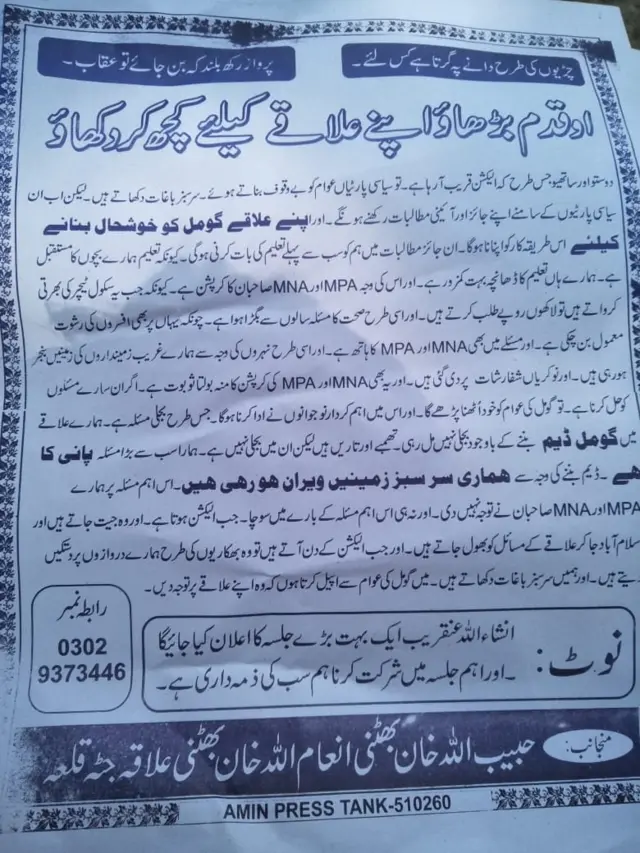 چڑیوں کی طرح دانے پہ گرتا ہے کس لئے۔
پرواز رکھ بلند کہ بن جائے تو عقاب۔
اوقدم بڑھاؤ اپنے علاقے کیلئے کچھ کر دکھاؤ
دوستو اور ساتھیو جس طرح کہ الیکشن قریب آرہا ہے۔ تو سیاسی پارٹیاں عوام کو بے وقوف بناتے ہوئے۔ سرسبز باغات دکھاتے ہیں۔ لیکن اب ان
سیاسی پارٹیوں کے سامنے اپنے جائز اور آئینی مطالبات رکھنے ہونگے۔ اور اپنے علاقے گومل کو خوشحال بنانے
کیلئے اس طریقہ کار کو اپنانا ہوگا۔ ان جائز مطالبات میں ہم کو سب سے پہلے تعلیم کی بات کرنی ہوگی۔ کیونکہ تعلیم ہمارے بچوں کا مستقبل
ہے۔ ہمارے ہاں تعلیم کا ڈھانچہ بہت کمزور ہے۔ اور اس کی وجہ MPA اور MNA صاحبان کا کرپشن ہے۔ کیونکہ جب یہ سکول ٹیچر کی بھرتی
کرواتے ہیں تو لاکھوں روپے طلب کرتے ہیں۔ اور اسی طرح صحت کا مسئلہ سالوں سے بگڑا ہوا ہے۔ چونکہ یہاں پر بھی افسروں کی رشوت
معمول بن چکی ہے۔ اور مسئلے میں بھی MNA اور MPA کا ہاتھ ہے۔ اور اسی طرح نہروں کی وجہ سے ہمارے غریب زمینداروں کی زمینیں بنجر
ہورہی ہیں۔ اور نوکریاں شفارشات پر دی گئی ہیں۔ اور یہ بھی MNA اور MPA کی کرپشن کا منہ بولتا ثبوت ہے۔ اگر ان سارے مسئلوں
کو حل کرنا ہے۔ تو گومل کی عوام کو خود اُٹھنا پڑھے گا۔ اور اس میں اہم کردار نوجوانوں نے ادا کرنا ہوگا۔ جس طرح بجلی مسئلہ ہے۔ ہمارے علاقے
میں گومل ڈیم بننے کے باوجود بجلی نہیں مل رہی۔ تھمبے اور تاریں ہیں لیکن ان میں بجلی نہیں ہے۔ ہمارا سب سے بڑا مسئلہ پانی کا
ھے۔ ڈیم بننے کی وجہ سے ھماری سر سبز زمینیں ویران ھو رھی ھیں۔ اس اہم مسئلہ پر ہمارے
MPA اور MNA صاحبان نے توجہ نہیں دی۔ اور نہ ہی اس اہم مسئلہ کے بارے میں سوچا۔ جب الیکشن ہوتا ہے۔ اور وہ جیت جاتے ہیں اور
سلام آباد جا کر علاقے کے مسائل کو بھول جاتے ہیں۔ اور جب الیکشن کے دن آتے ہیں تو وہ بھکاریوں کی طرح ہمارے دروازوں پر دستکیں
دیتے ہیں۔ اور ہمیں سرسبز باغات دکھاتے ہیں۔ میں گومل کی عوام سے اپیل کرتا ہوں کہ وہ اپنے علاقے پر توجہ دیں۔
نوٹ:
انشاءاللہ عنقریب ایک بہت بڑے جلسہ کا اعلان کیا جائیگا
۔اور اہم جلسہ میں شرکت کرنا ہم سب کی ذمہ داری ہے۔
رابطہ نمبر
0302
9373446
منجانب: حبیب اللہ خان بھٹنی انعام اللہ خان بھٹنی علاقہ جٹہ قلعہ
AMIN PRESS TANK-510260